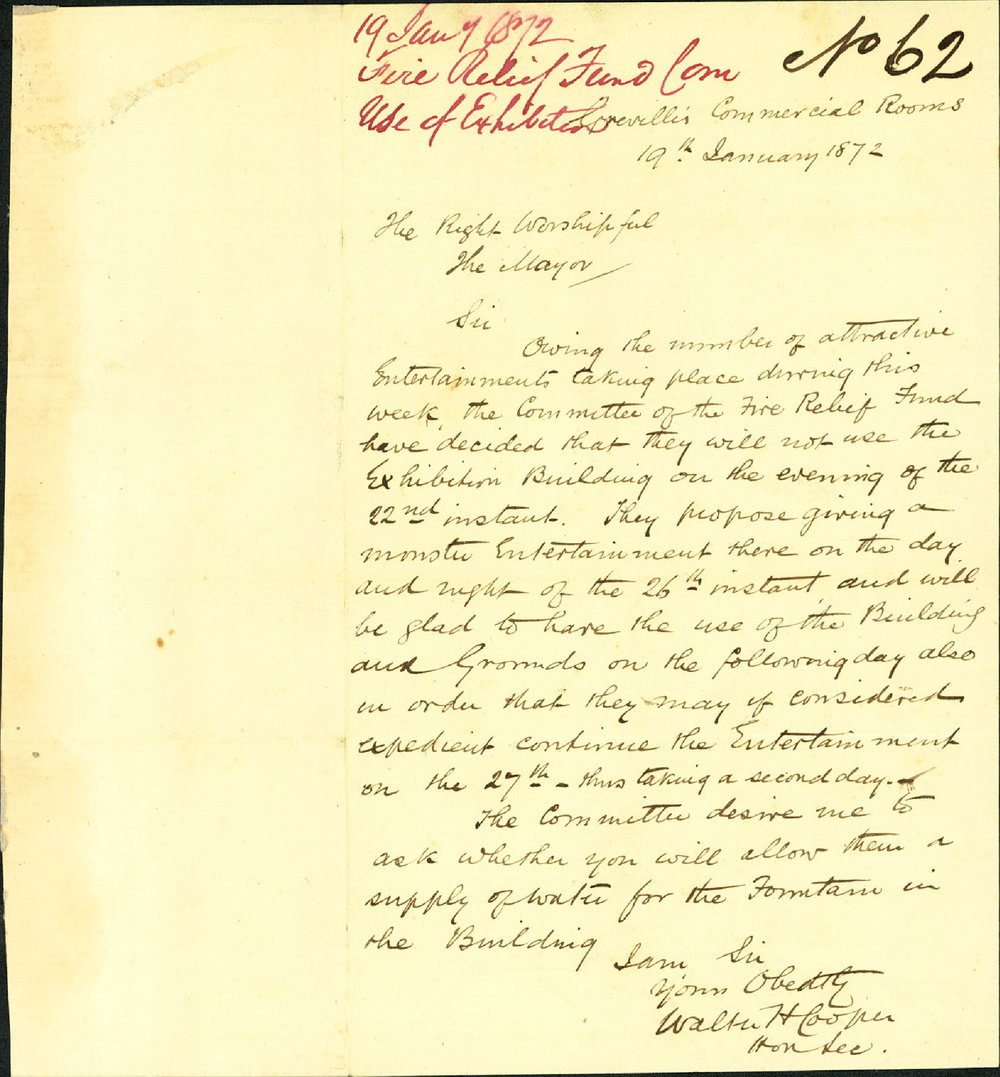 19 Jany 1872
Fire Relief Fund Com
Use of Exhibition
No 62
Greville's Commercial Rooms
19th January 1872
The Right Worshipful
The Mayor
Sir
Owing the number of attractive
Entertainments taking place during this
week, the Committee of the Fire Relief Fund
have decided that they will not use the
Exhibition Building on the evening of the
22nd instant. They propose giving a
monster Entertainment there on the day
and night of the 26th instant, and will
be glad to have the use of the Building
and Grounds on the following day also
in order that they may if considered
expedient continue the Entertainment
on the 27th - thus taking a second day.
The Committee desire me to
ask whether you will allow them a
supply of water for the Fountain in
the Building
I am Sir
Yours Obedtly
Walter H Cooper
Hon Sec.